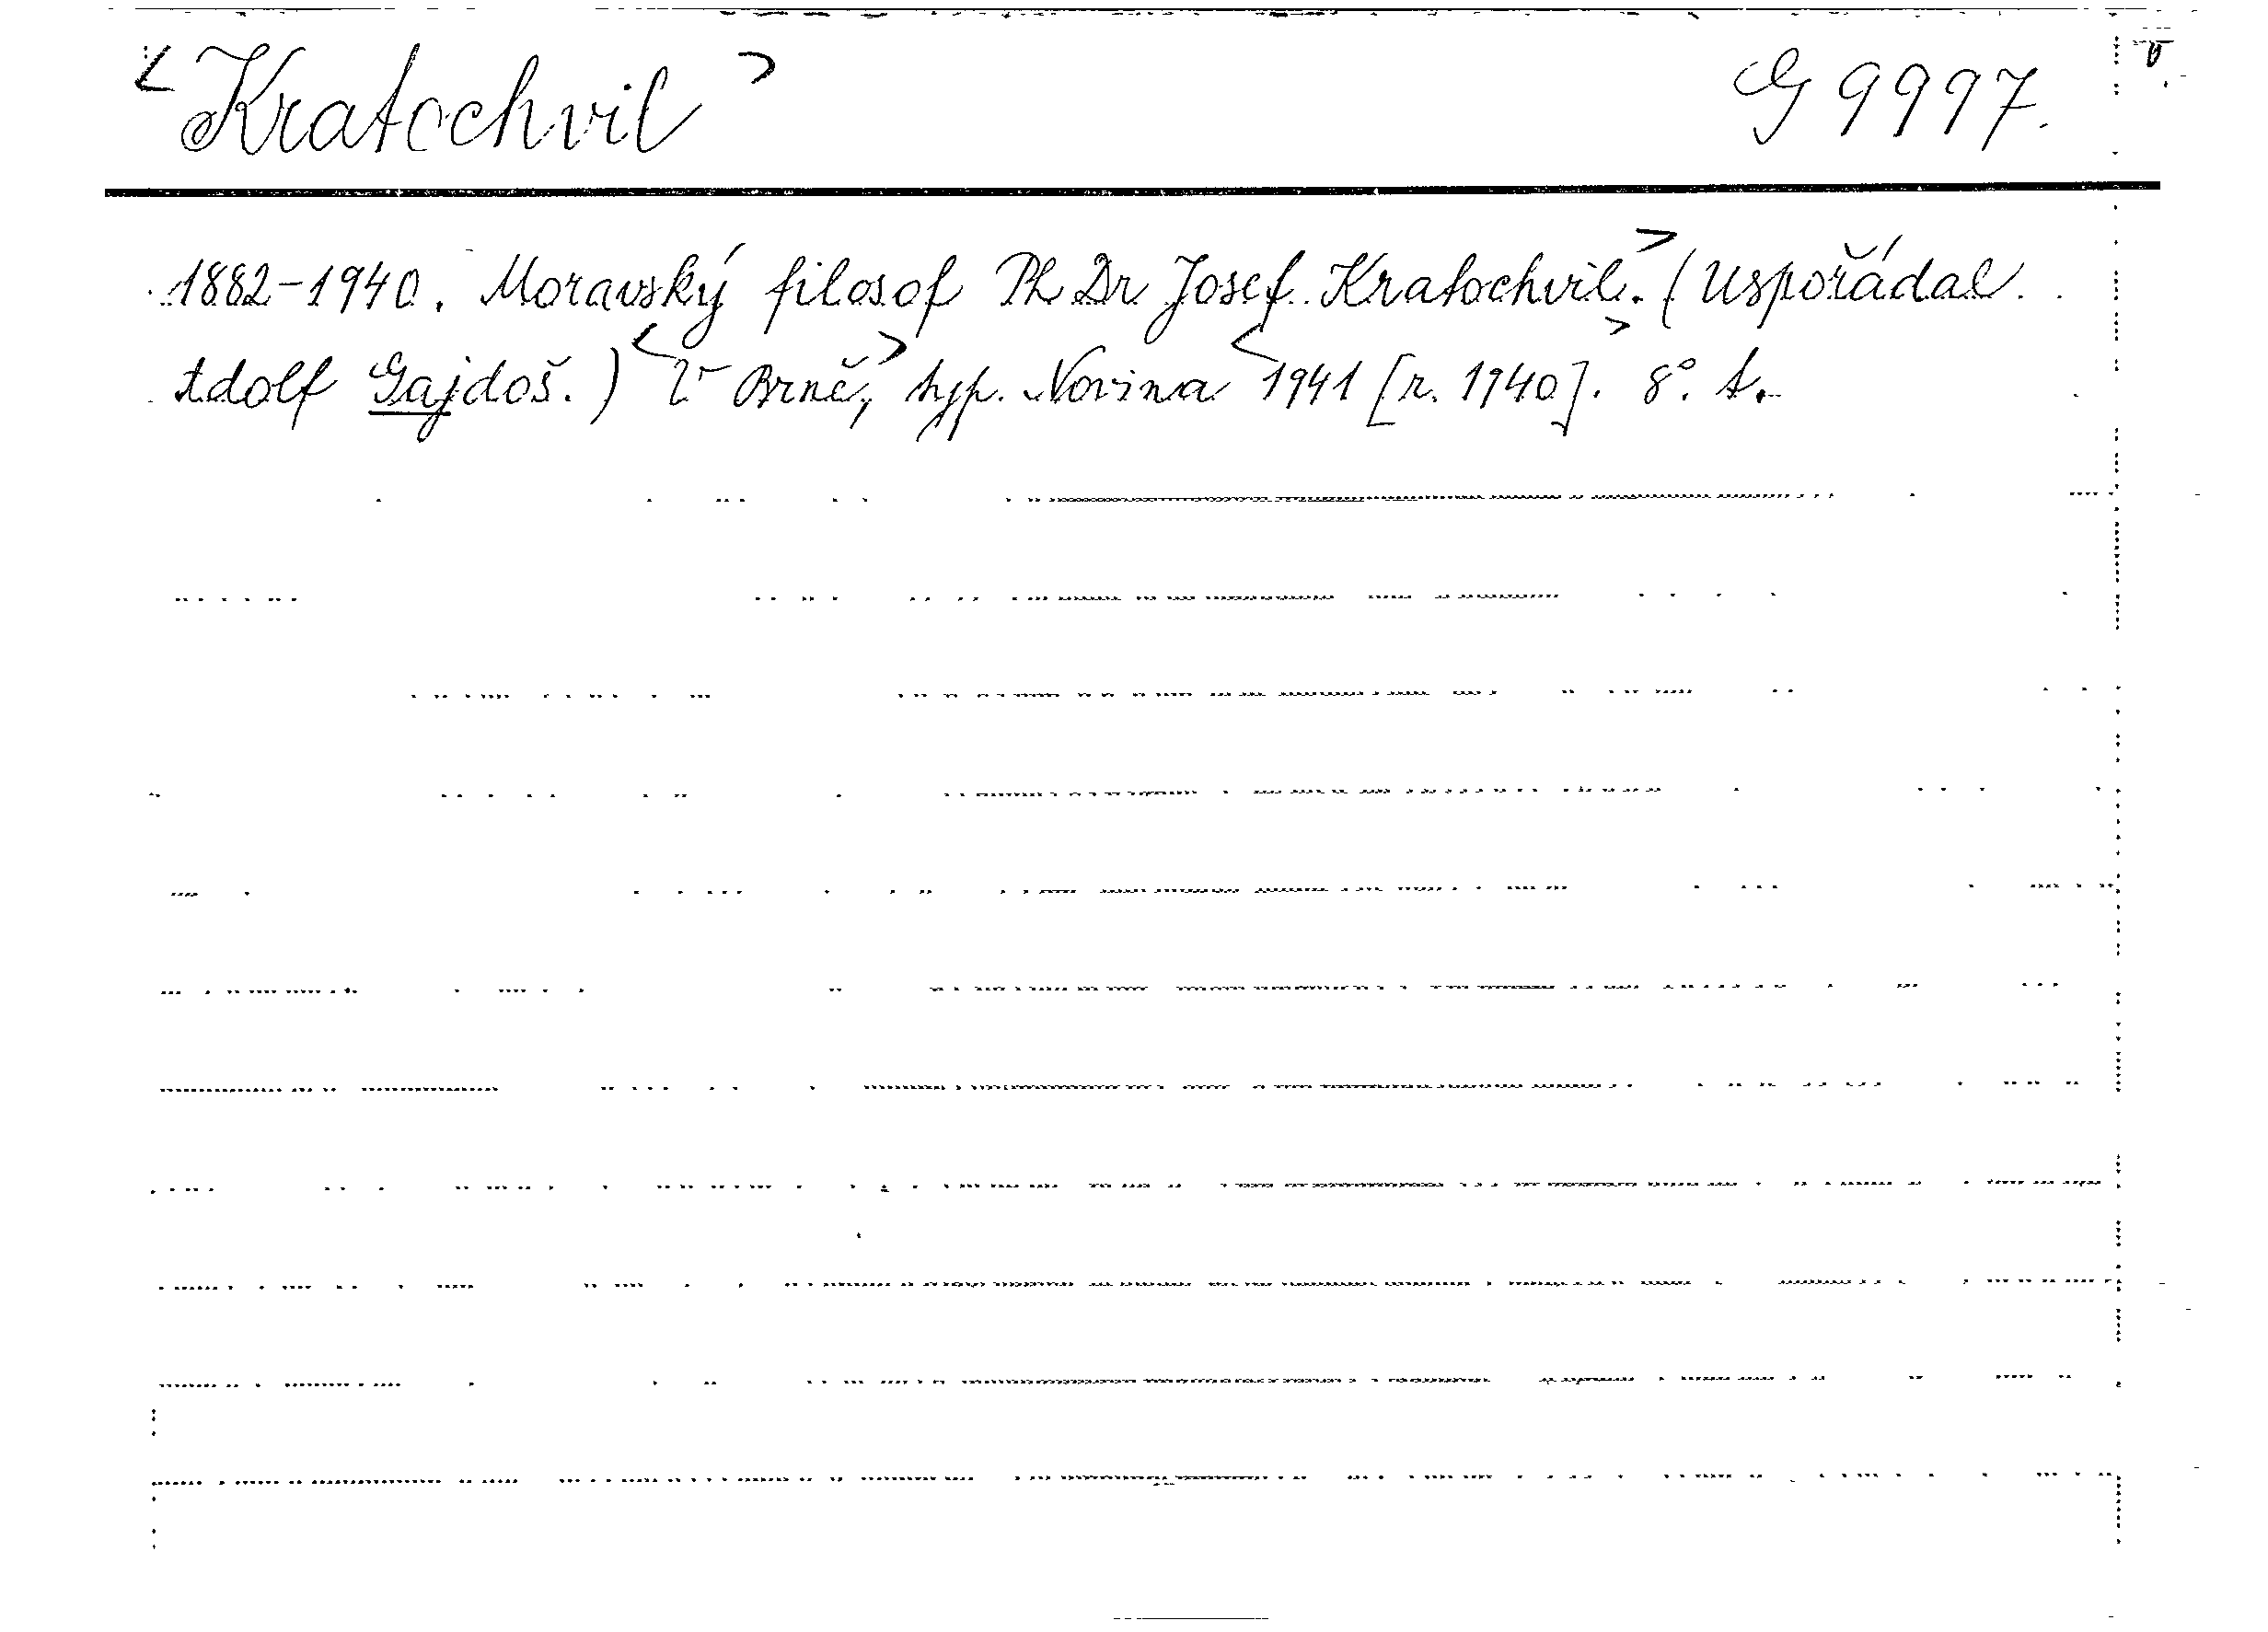 <Kratochvil> G 9997.
1882-1940. Moravský filosof Ph Dr Josef Kratochvil.> (Uspořádal
Adolf Gajdoš.) <V Brně,> typ. Novina <1941 [r. 1940]>. 8°. t.